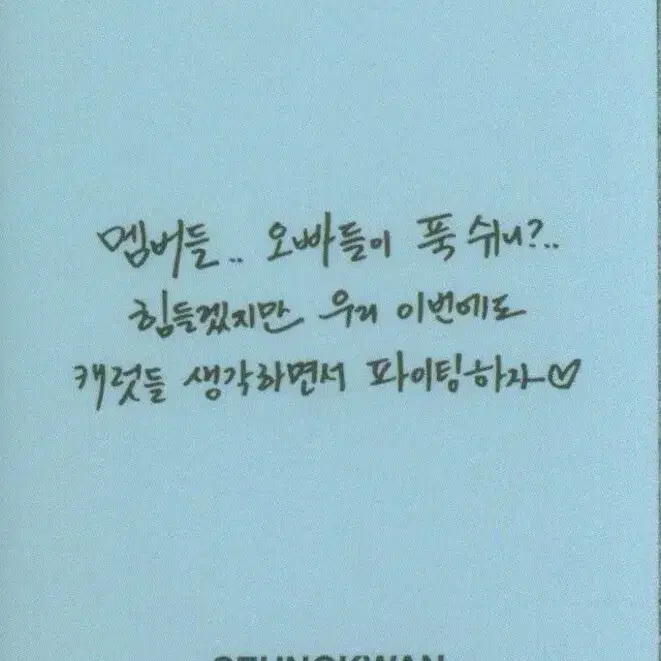 멤버들.. 오빠들이 푹 쉬니?..
힘들겠지만 우리 이번에도
캐럿들 생각하면서 파이팅하자♡
SEUNGKWAN